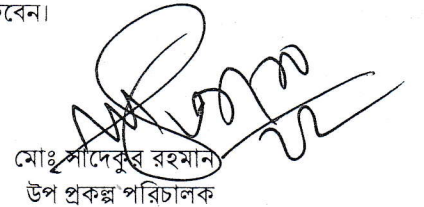 বেন।
মোঃ সাদেকুর রহমান
উপ প্রকল্প পরিচালক